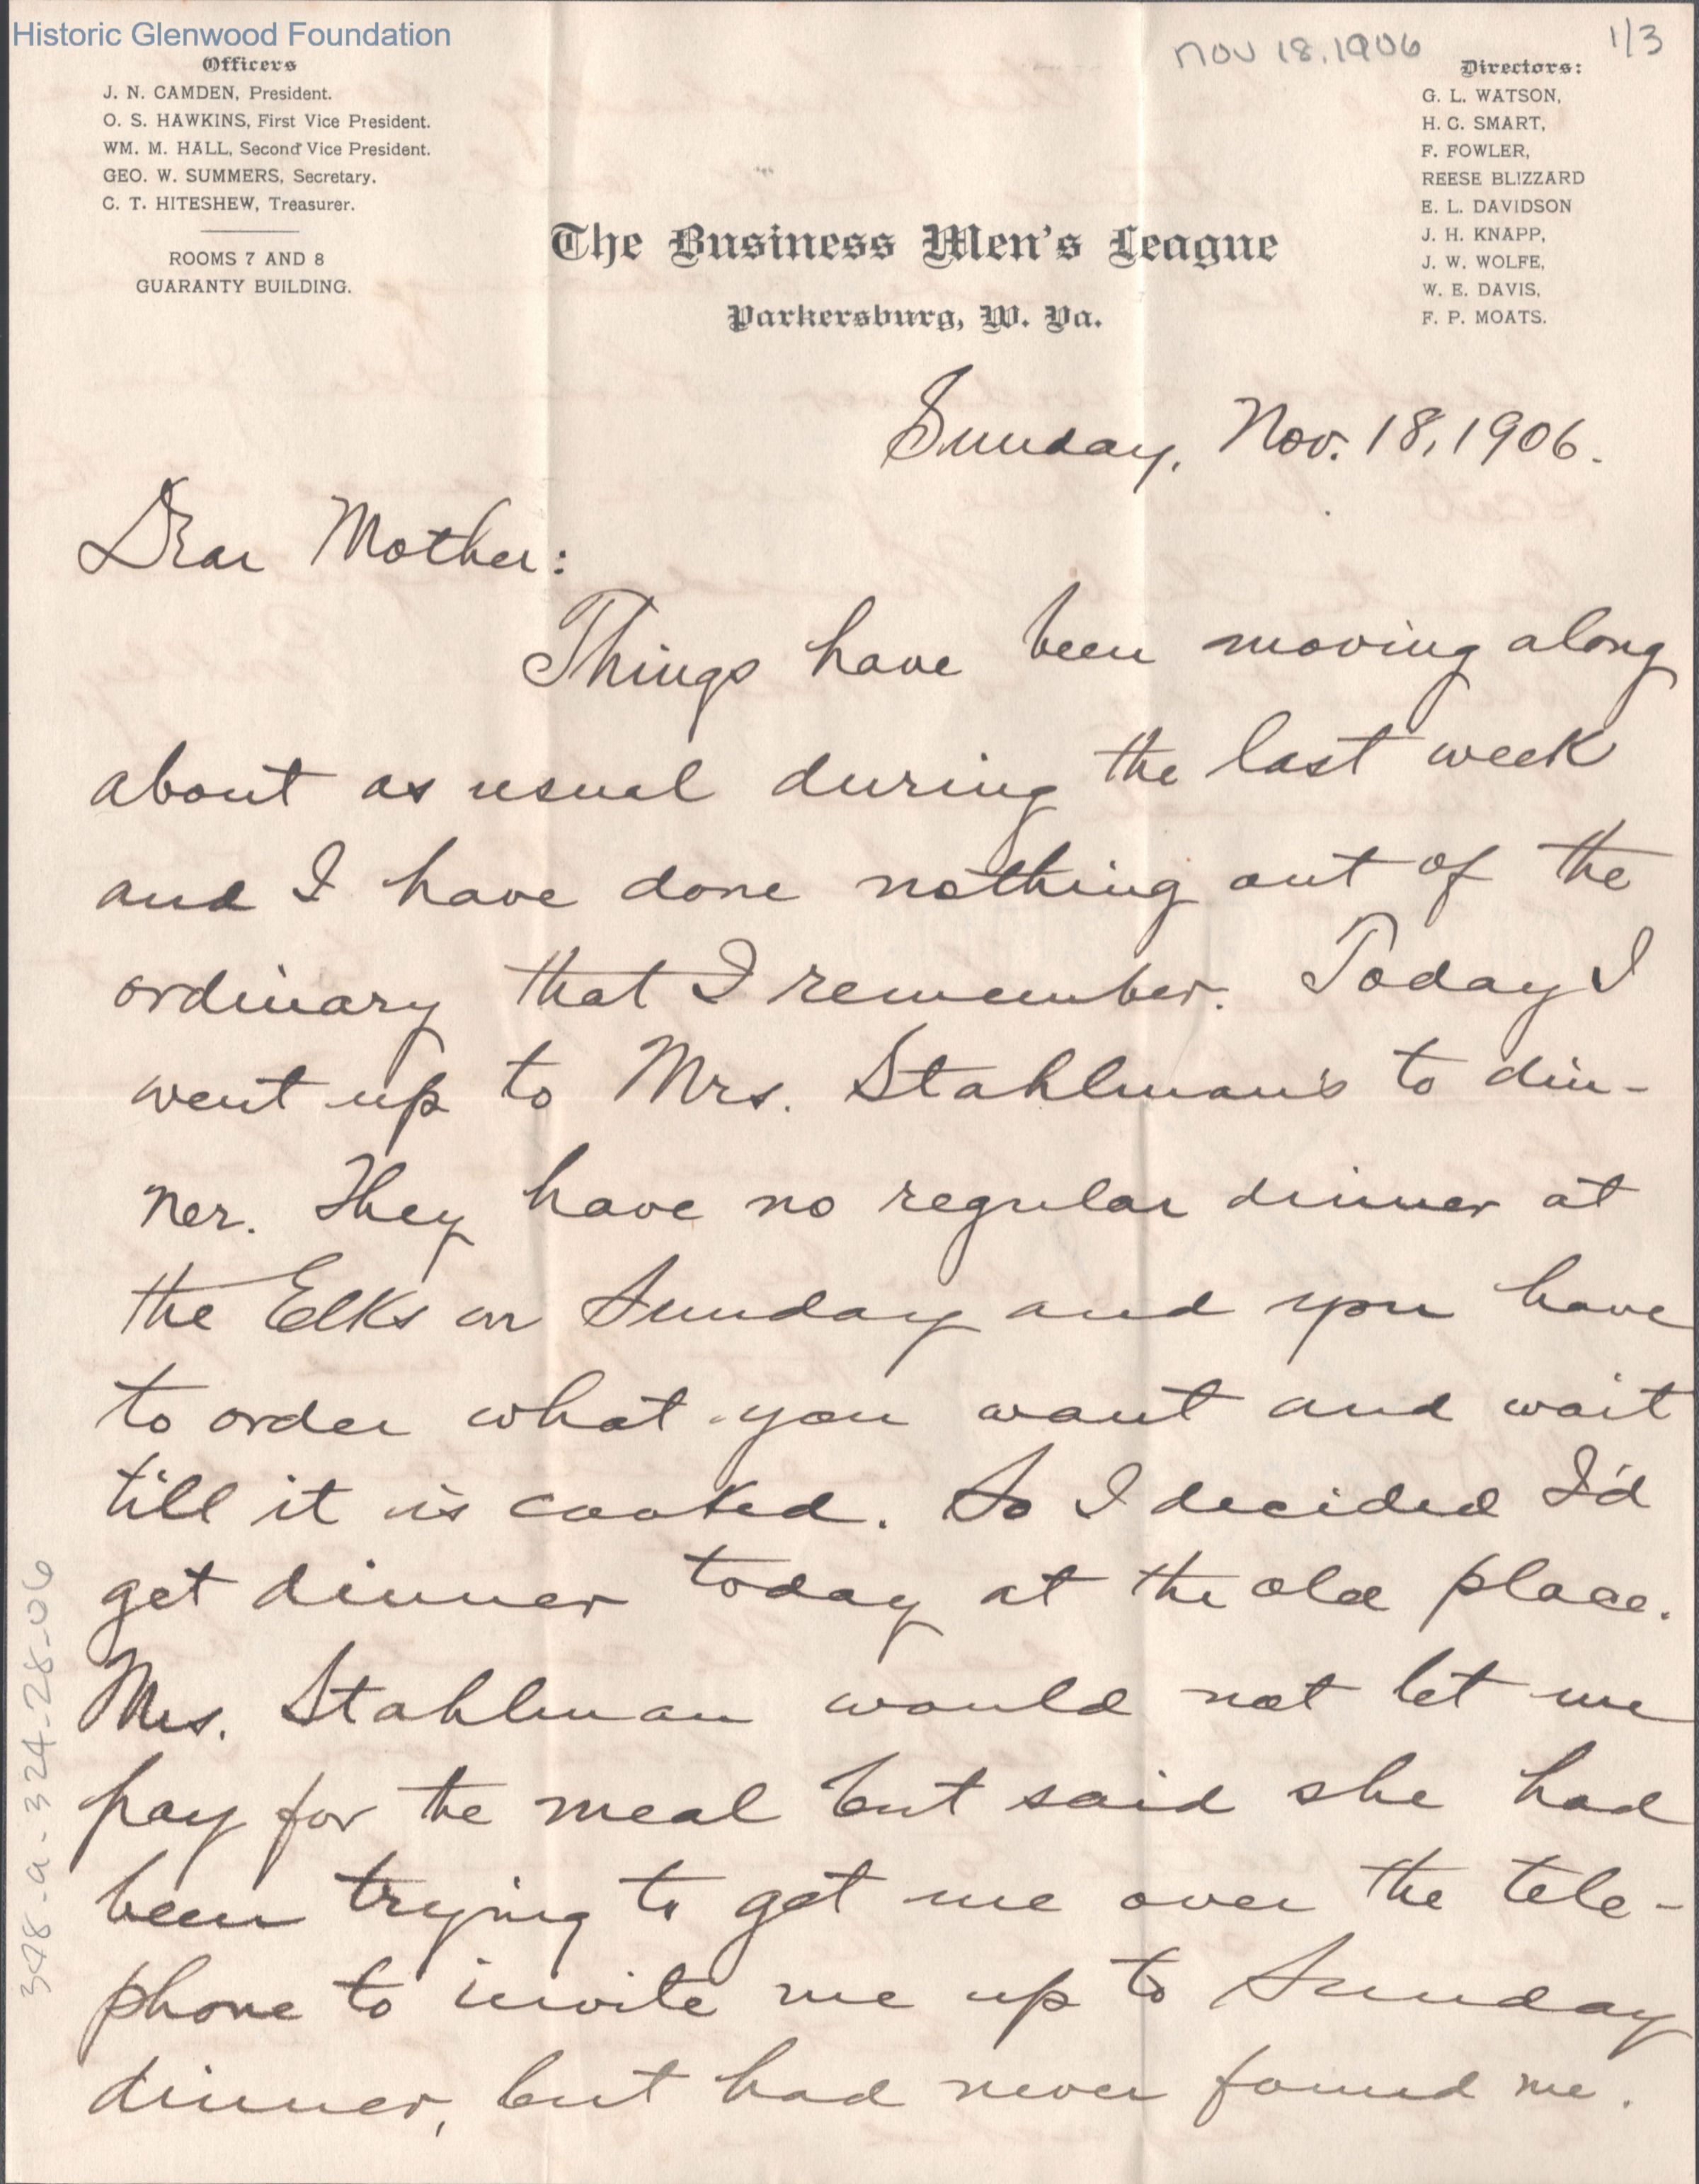 Historic Glenwood Foundation
Nov 18, 1906
1/3
Officers
J. N. CAMDEN, President.
O. S. HAWKINS, First Vice President.
WM. M. HALL, Second Vice President.
GEO. W. SUMMERS, Secretary.
C. T. HITESHEW, Treasurer.
ROOMS 7 AND 8
GUARANTY BUILDING.
Directors:
G. L. WATSON,
H. C. SMART,
F. FOWLER,
REESE BLIZZARD
E. L. DAVIDSON
J. H. KNAPP,
J. W. WOLFE,
W. E. DAVIS,
F. P. MOATS.
The Business Men's League
Parkersburg, W. Va.
Sunday, Nov. 18, 1906.
Dear Mother:
Things have been moving along
about as usual during the last week
and I have done nothing out of the
ordinary that I remember. Today I
went up to Mrs. Stahlman's to din-
ner. They have no regular dinner at
the Elks on Sunday and you have
to order what you want and wait
till it is cooked. So I decided I'd
get dinner today at the old place.
Mrs. Stahlman would not let me
pay for the meal but said she had
been trying to get me over the tele-
phone to invite me up to Sunday
dinner, but had never found me.
398-a-324-28-06